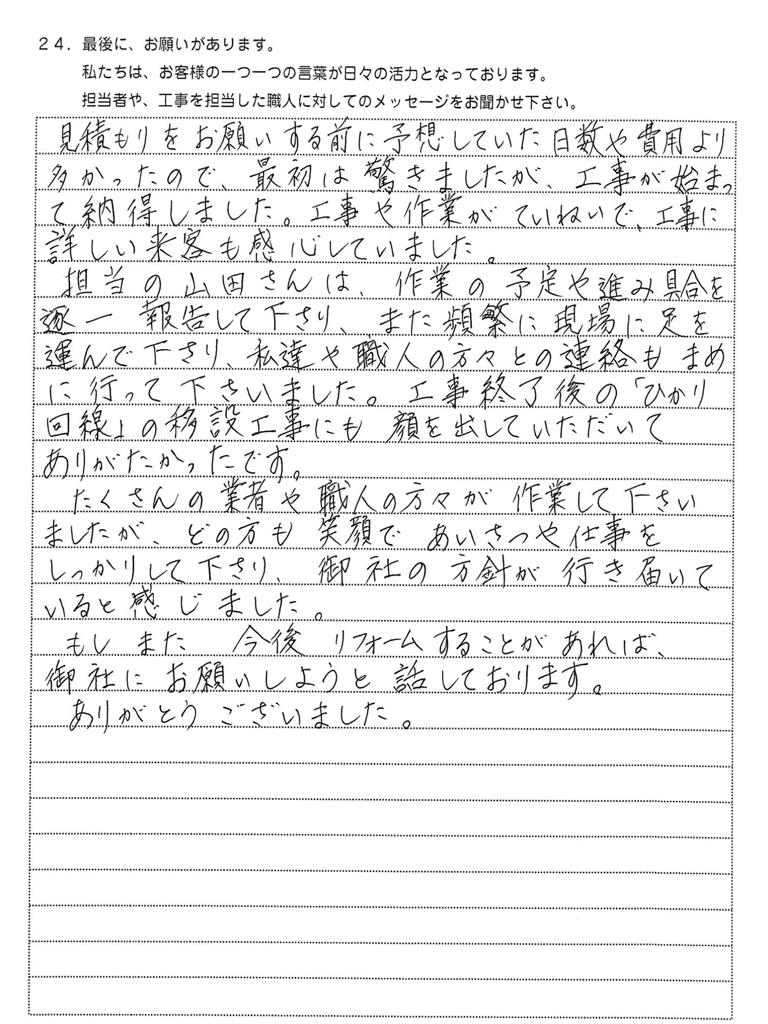 24．最後に、お願いがあります。
私たちは、お客様の一つ一つの言葉が日々の活力となっております。
担当者や、工事を担当した職人に対してのメッセージをお聞かせ下さい。
見積もりをお願いする前に予想していた日数や費用より
多かったので、最初は驚きましたが、工事が始まっ
て納得しました。工事や作業がていねいで、工事に
詳しい来客も感心していました。
担当の山田さんは、作業の予定や進み具合を
逐一報告して下さり、また頻繁に現場に足を
運んで下さり、私達や職人の方々との連絡もまめ
に行って下さいました。工事終了後の「ひかり
回線」の移設工事にも顔を出していただいて
ありがたかったです。
たくさんの業者や職人の方々が作業して下さい
ましたが、どの方も笑顔であいさつや仕事を
しっかりして下さり、御社の方針が行き届いて
いると感じました。
もしまた 今後リフォームすることがあれば、
御社にお願いしようと話しております。
ありがとうございました。